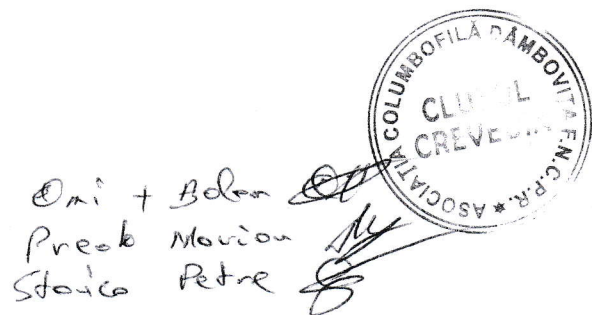 ASOCIAȚIA COLUMBOFILĂ DÂMBOVIȚA F.N.C.P.R. *
CLUBUL
Omi + Bolan
Preob Marian
Stoica Petre